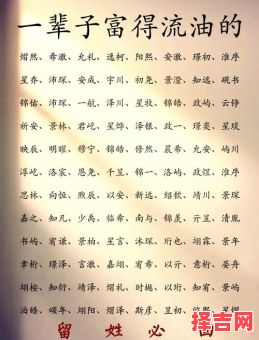 一辈子富得流油的
熠然、希澈、允礼、逸柯、阳熙、安澈、璟初、淮序
星乔、沛琛、安成、宇川、初尧、景澄、知远、砚书
锦佑、沛琮、一航、泽川、星牧、锦皓、政屿、云铮
祈安、景林、君屹、星烨、泽银、政一、璟奕、星琰
映辰、明曜、穆宁、锦皓、修然、晨希、允安、屿川
淳屹、洛宸、恩尧、千昱、锦一、洛屿、政煜、淮序
思林、向恒、熙辰、以安、新远、绍钦、靖川、景琛
嘉之、知凡、少禹、临希、南与、锦灵、亓昱、清胤
书屿、宥谦、景柏、星言、沐琛、珩也、翊霖、景年
聿珩、璟泽、言澈、嘉翊、宥希、以亓、意桁、晏舟
翊桉、知衍、靖泽、熠礼、时樾、以珩、知宥、景屿
治皓、颂年、翊阳、熠泽、斯彦、昱初、临熙、星樾
留姓必回
择吉网